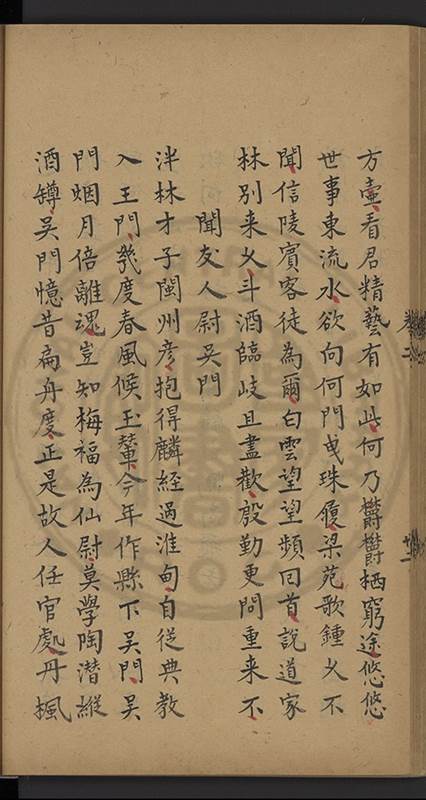 方壺看君精藝有如此何乃鬱鬱栖窮途悠悠
世事東流水欲向何門曳珠履梁苑歌鍾久不
聞信陵賓客徒為爾白雲望望頻回首說道家
林別来久斗酒臨歧且盡歡殷勤更問重来不
聞友人尉吴門
泮林才子閩州彦抱得麟經過淮甸自從典教
入王門幾度春風候玉輦今年作縣下吴門吴
門烟月倍離魂豈知梅福為仙尉莫學陶潛縱
酒罇吴門憶昔扁舟度正是故人任官處丹楓